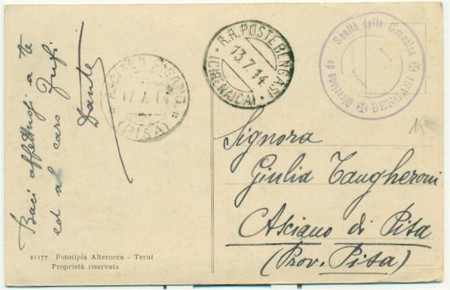 Baci affettuosi a te
ed al caro
Dante
ASCIANO PISANO
17.7.14
(PISA)
R.R. POSTE BENGASI
13.7.14
(CIRENAICA)
Sanità della Cirenaica
BENGASI
Signora
Giulia Tangheroni
Asciano di Pisa
(Prov. Pisa)
21177 Fototipia Alterocca - Terni
Proprietà riservata